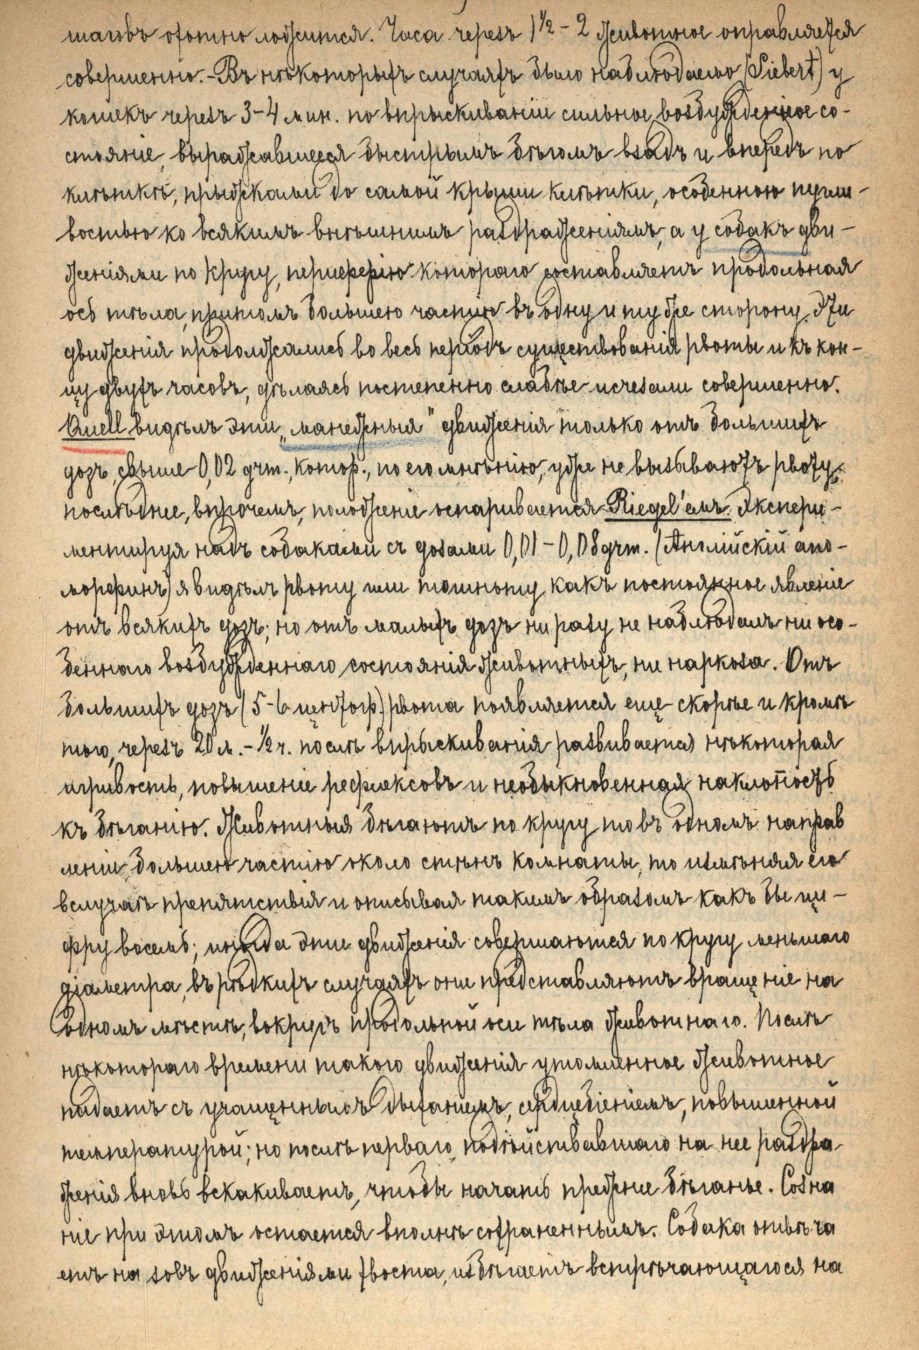 шаговъ охотно ложится. Часа черезъ 1 1/2 – 2 животное оправляется
совершенно. – Въ нѣкоторыхъ случаяхъ было наблюдаемо (Siebert) у
кошекъ черезъ 3–4 мин. по впрыскиваніи сильное возбужденное со-
стояніе, выражавшееся быстрымъ бѣгомъ взадъ и впередъ по
клѣткѣ, прыжками до самой крыши клѣтки, особенною пугли-
востью ко всякимъ внѣшнимъ раздраженіямъ, а у собакъ дви-
женіями по кругу, периферію котораго составляетъ продольная
ось тѣла, притомъ большею частію въ одну и ту же сторону. Эти
движенія продолжались во весь періодъ существованія рвоты и къ кон-
цу двухъ часовъ, дѣлаясь постепенно слабѣе исчезали совершенно.
Quell видѣлъ эти „манежныя" движенія только отъ большихъ
дозъ, свыше 0,02 дгт., котор., по его мнѣнію, уже не вызываютъ рвоту;
послѣднее, впрочемъ, положеніе оспаривается Riegel'емъ. Экспери-
ментируя надъ собаками съ дозами 0,01 – 0,08 дгт. (Англійскій апо-
морфинъ) я видѣлъ рвоту или тошноту, какъ постоянное явленіе
отъ всякихъ дозъ; но отъ малыхъ дозъ ни разу не наблюдалъ ни осо-
беннаго возбужденнаго состоянія животныхъ, ни наркоза. Отъ
большихъ дозъ (5–6 центогр.) рвота появляется еще скорѣе и кромѣ
того, черезъ 20 м. – 1/2 ч. послѣ впрыскиванія развивается нѣкоторая
игривость, повышеніе рефлексовъ и необыкновенная наклоность
къ бѣганію. Животныя бѣгаютъ по кругу то въ одномъ направ
леніи, большею частію около стѣнъ комнаты, то измѣняя его
вслучаѣ препятствія и описывая такимъ образомъ какъ бы ци-
фру восемь; иногда эти движенія совершаются по кругу меньшаго
діаметра, въ рѣдкихъ случаяхъ они представляютъ вращеніе на
одномъ мѣстѣ, вокругъ продольной оси тѣла животнаго. Послѣ
нѣкотораго времени такого движенія утомленное животное
падаетъ съ учащеннымъ дыханіемъ, сердцебіеніемъ, повышенной
температурой; но послѣ перваго, подѣйствовавшаго на нее раздра-
женія вновь вскакиваетъ, чтобы начать прежнее бѣганье. Созна
ніе при этомъ остается вполнѣ сохраненнымъ. Собака отвѣча
етъ на зовъ движеніями хвоста, избѣгаетъ встрѣчающагося на